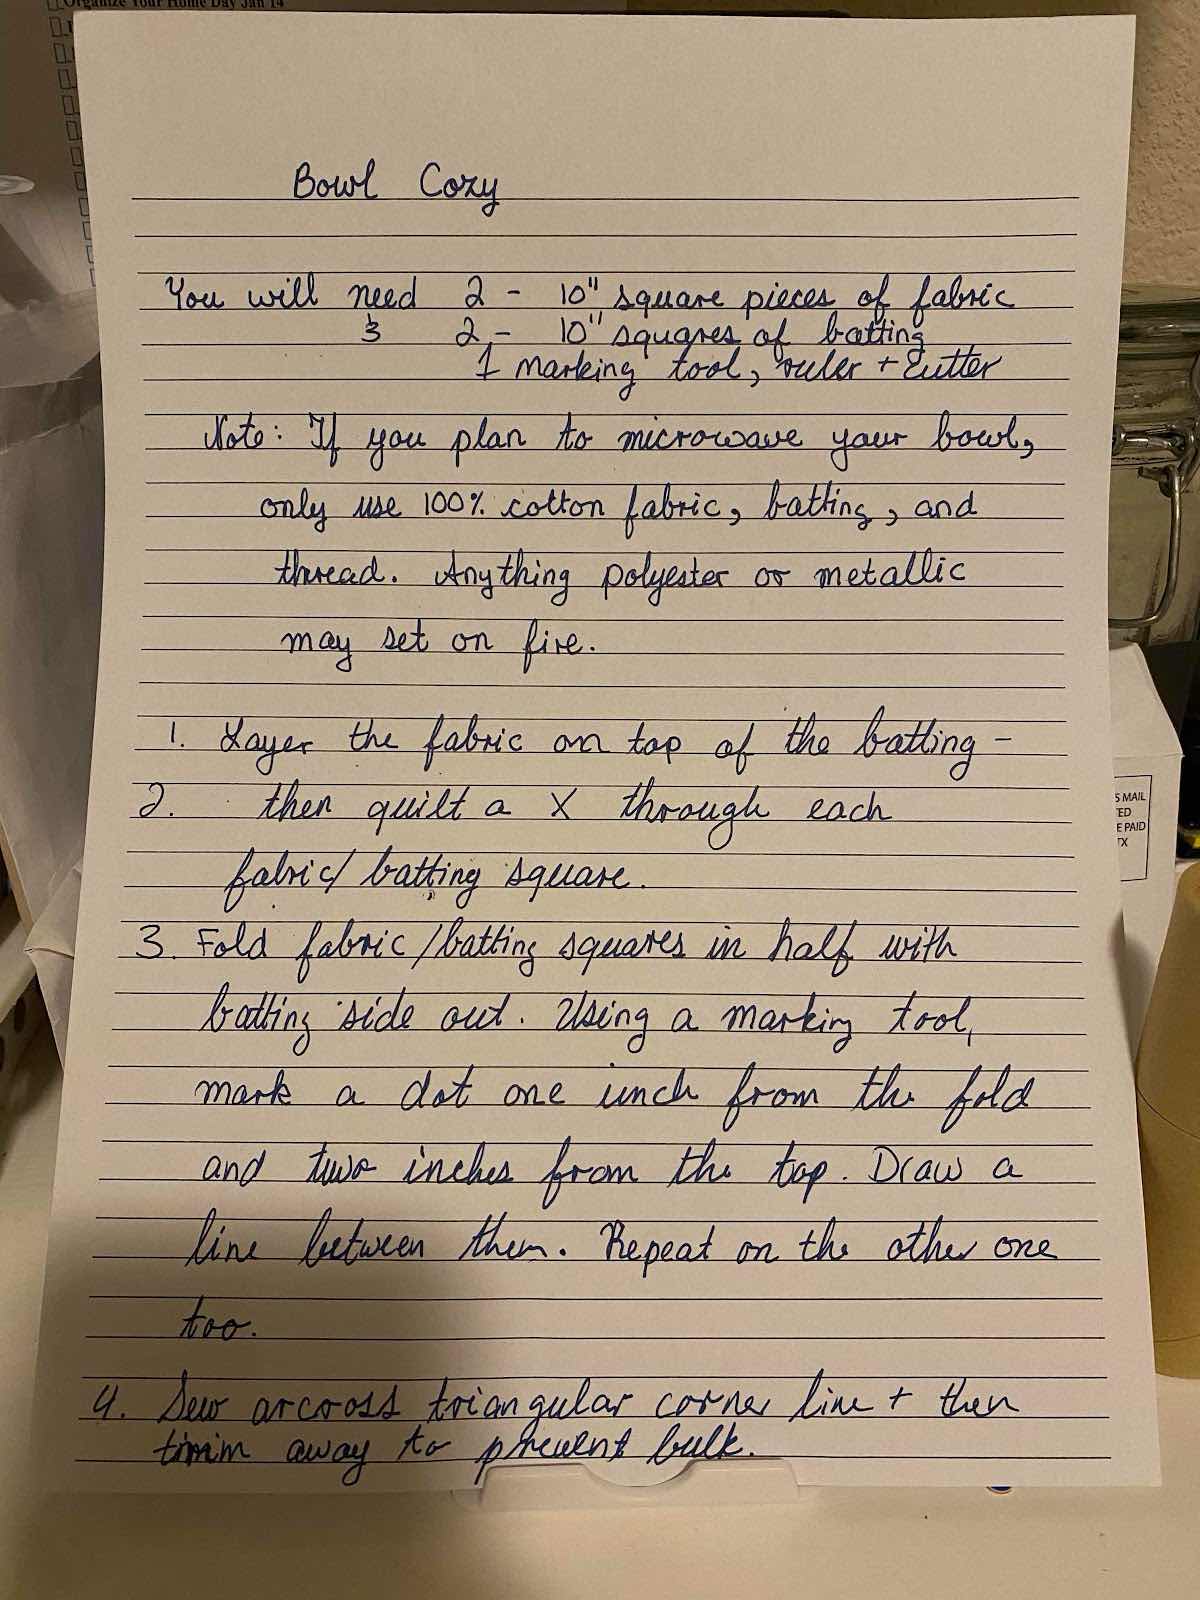 Organize Your Home Day Jan 14
Bowl Cozy
You will need 2 - 10" square pieces of fabric
& 2 - 10" squares of batting
1 marking tool, ruler + cutter
Note: If you plan to microwave your bowl,
only use 100% cotton fabric, batting, and
thread. Anything polyester or metallic
may set on fire.
1. Layer the fabric on top of the batting -
2. then quilt a X through each
fabric/ batting square.
3. Fold fabric/batting squares in half with
batting side out. Using a marking tool,
mark a dot one inch from the fold
and two inches from the top. Draw a
line between them. Repeat on the other one
too.
4. Sew arcross triangular corner line + then
trimim away to prevent bulk.
S MAIL
ED
E PAID
TX